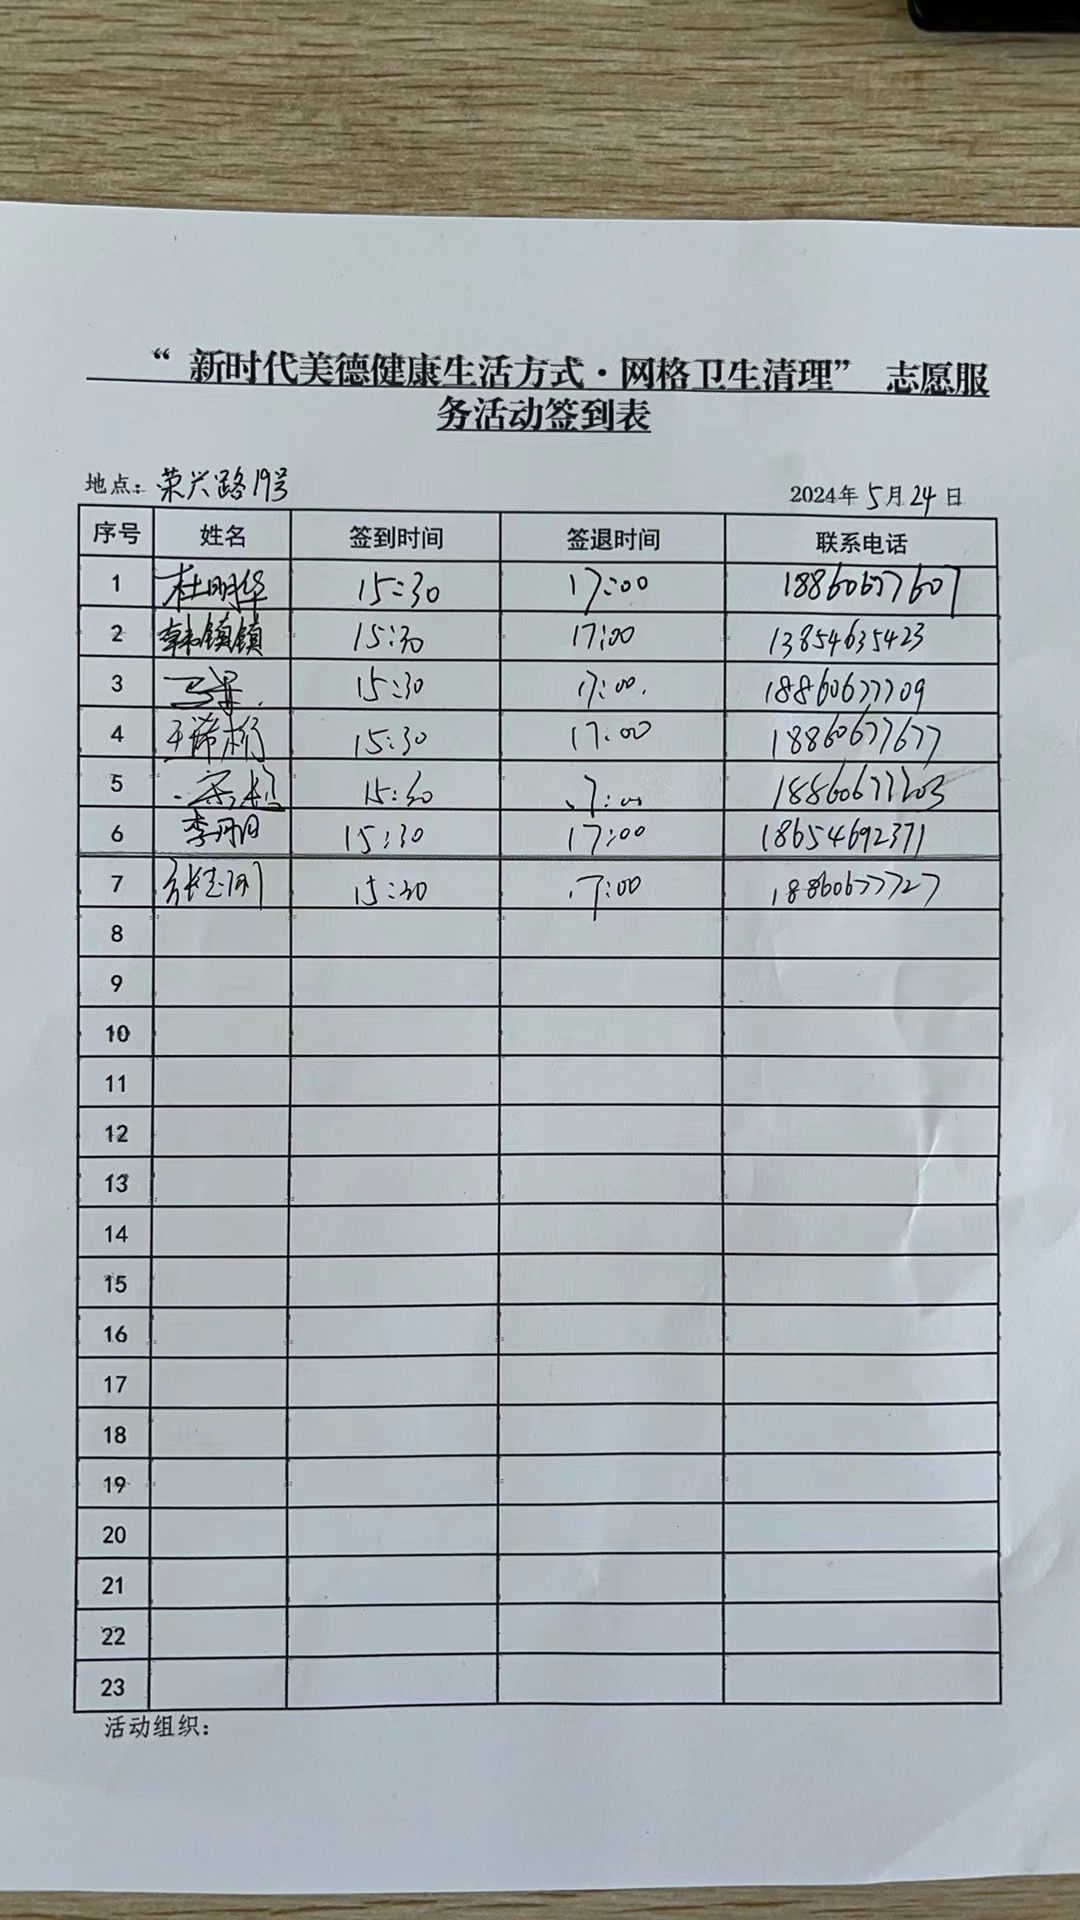 “新时代美德健康生活方式·网格卫生清理” 志愿服
务活动签到表
地点：荣兴路19号 2024年5月24日
序号 姓名 签到时间 签退时间 联系电话
1 杜明华 15:30 17:00 18860677607
2 韩镇镇 15:30 17:00 13854635423
3 15:30 17:00 18860677709
4 15:30 17:00 18860677677
5 15:30 17:00
6 李丹丹 15:30 17:00 18654692371
7 15:30 17:00 18860677727
8
9
10
11
12
13
14
15
16
17
18
19
20
21
22
23
活动组织：